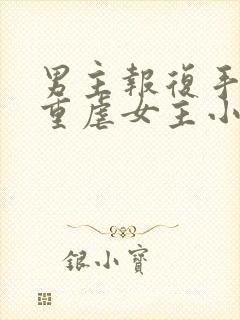 男主報復手
重虐女主小
銀小寶